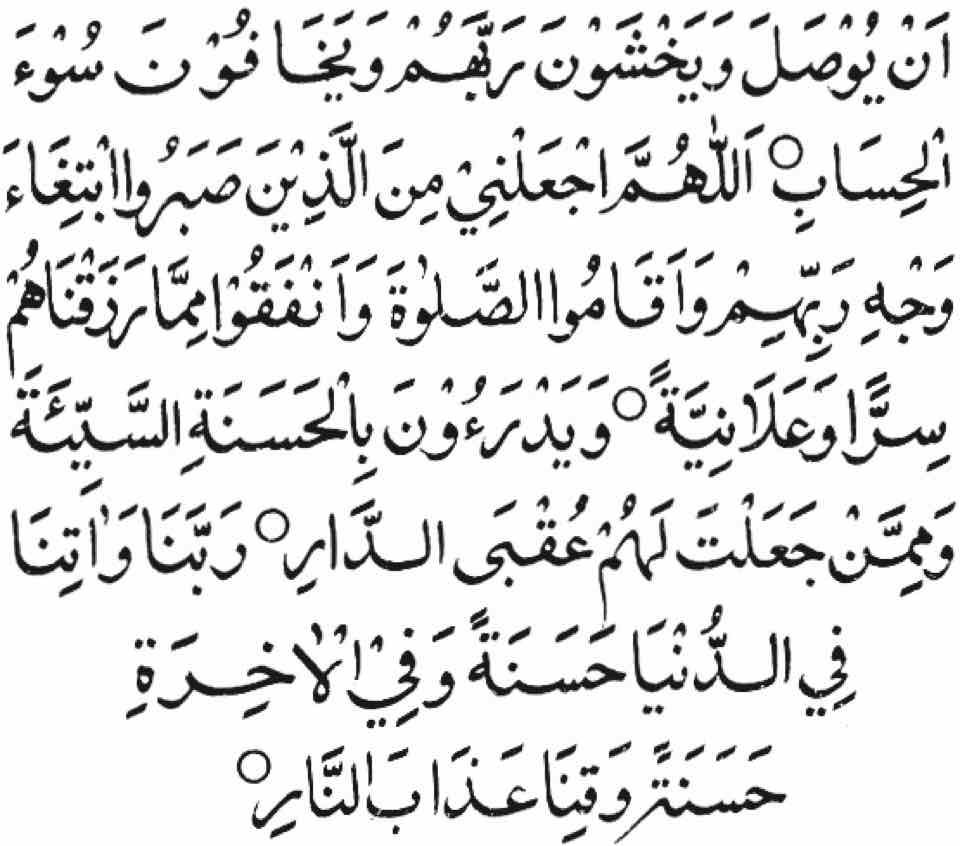 اَنْ يُوْصَلَ وَيَخْشَوْنَ رَبَّهُمْ وَيَخَافُوْنَ سُوْءَ
الْحِسَابِ ○ اَللّٰهُمَّ اجْعَلْنِيْ مِنَ الَّذِيْنَ صَبَرُوا ابْتِغَاءَ
وَجْهِ رَبِّهِمْ وَاَقَامُوا الصَّلٰوةَ وَاَنْفَقُوْا مِمَّا رَزَقْنَاهُمْ
سِرًّا وَعَلَانِيَّةً ○ وَيَدْرَءُوْنَ بِالْحَسَنَةِ السَّيِّئَةَ
وَمِمَّنْ جَعَلْتَ لَهُمْ عُقْبَى الدَّارِ ○ رَبَّنَا وَاٰتِنَا
فِي الدُّنْيَا حَسَنَةً وَفِيْ الْاٰخِرَةِ
حَسَنَةً وَقِنَا عَذَابَ النَّارِ ○